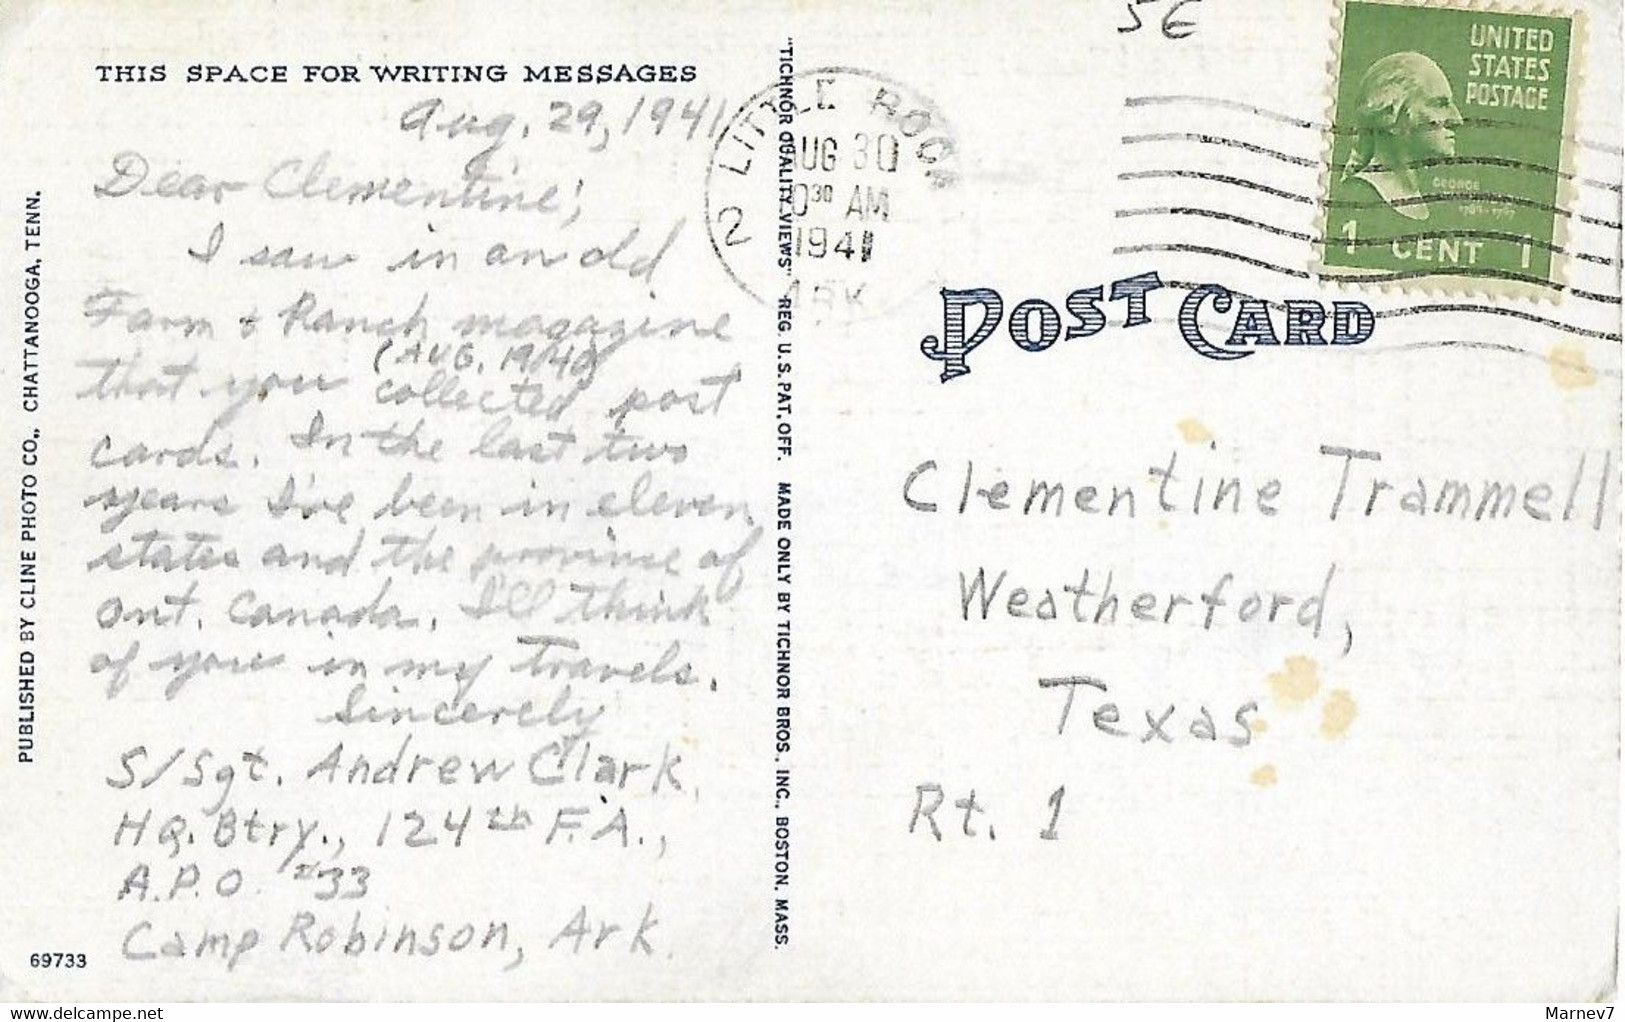 THIS SPACE FOR WRITING MESSAGES
Aug. 29, 1941
Dear Clementine;
I saw in an old
Farm + Ranch magazine
(AUG. 1940)
that you collected post
cards. In the last two
years I've been in eleven
states and the province of
Ont. Canada. I'll think
of you in my travels.
Sincerely
S/Sgt. Andrew Clark,
Hq. Btry., 124th F.A.,
A.P.O. #33
Camp Robinson, Ark.
69733
PUBLISHED BY CLINE PHOTO CO., CHATTANOOGA, TENN.
"TICHNOR QUALITY VIEWS" REG. U. S. PAT. OFF. MADE ONLY BY TICHNOR BROS., INC., BOSTON, MASS.
LITTLE ROCK
2
AUG 30
AM
1941
ARK.
5€
UNITED
STATES
POSTAGE
GEORGE
1 CENT 1
POST CARD
Clementine Trammell
Weatherford,
Texas
Rt. 1
Marnev7